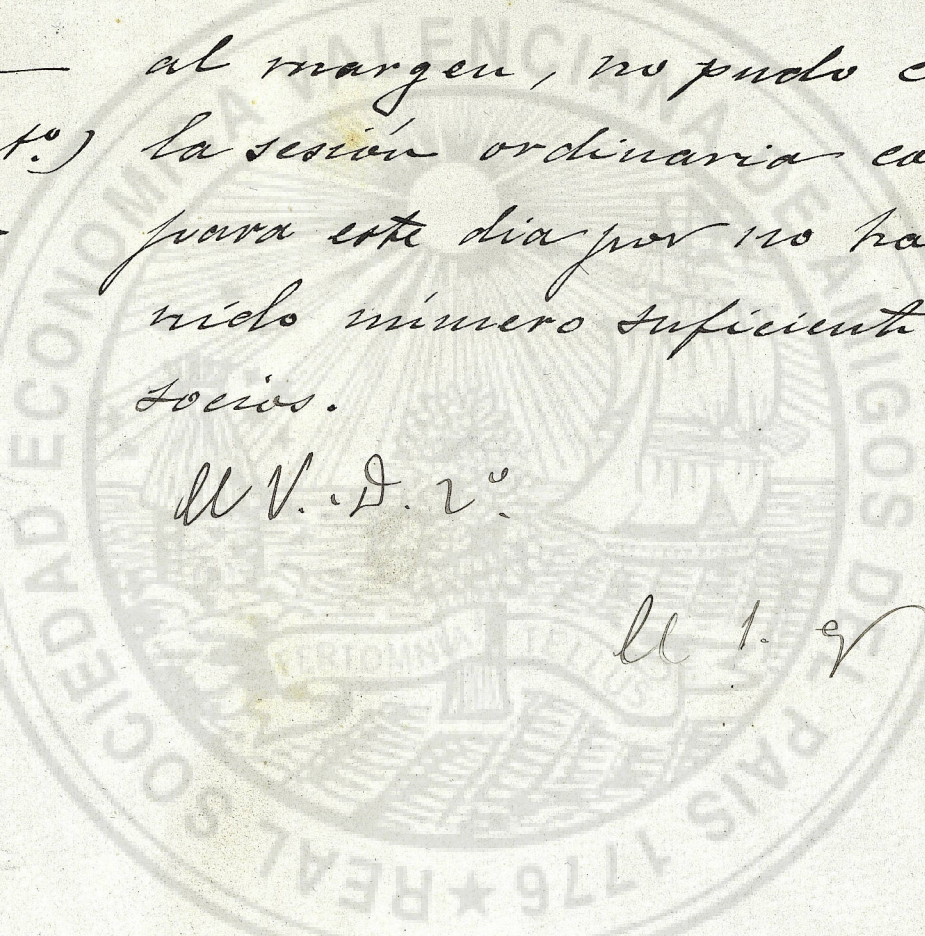 al margen, no pudo c
tº.) la sesión ordinaria co
para este dia por no ha
nido número suficient
socios.
El V.. D. 2º.
El S. g
REAL SOCIEDAD ECONOMICA VALENCIANA DE AMIGOS DEL PAIS 1776